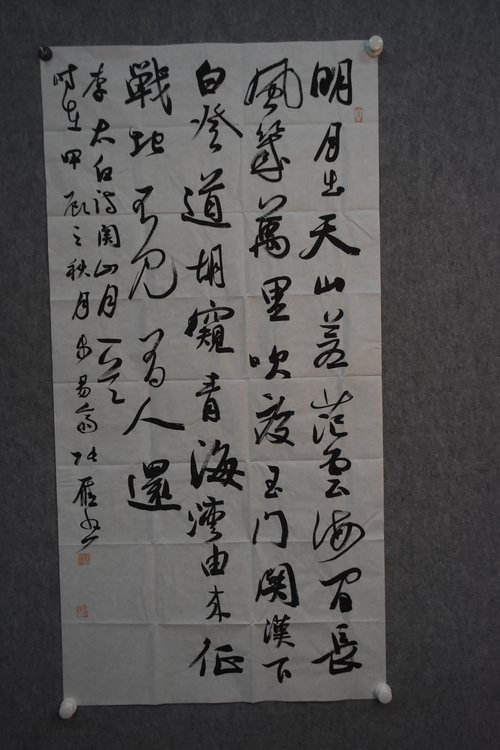 明月出天山蒼茫雲海間長
風幾萬里吹度玉门関漢下
白登道胡窺青海灣由来征
戰地不見有人還
李太白诗関山月
时在甲辰之秋月